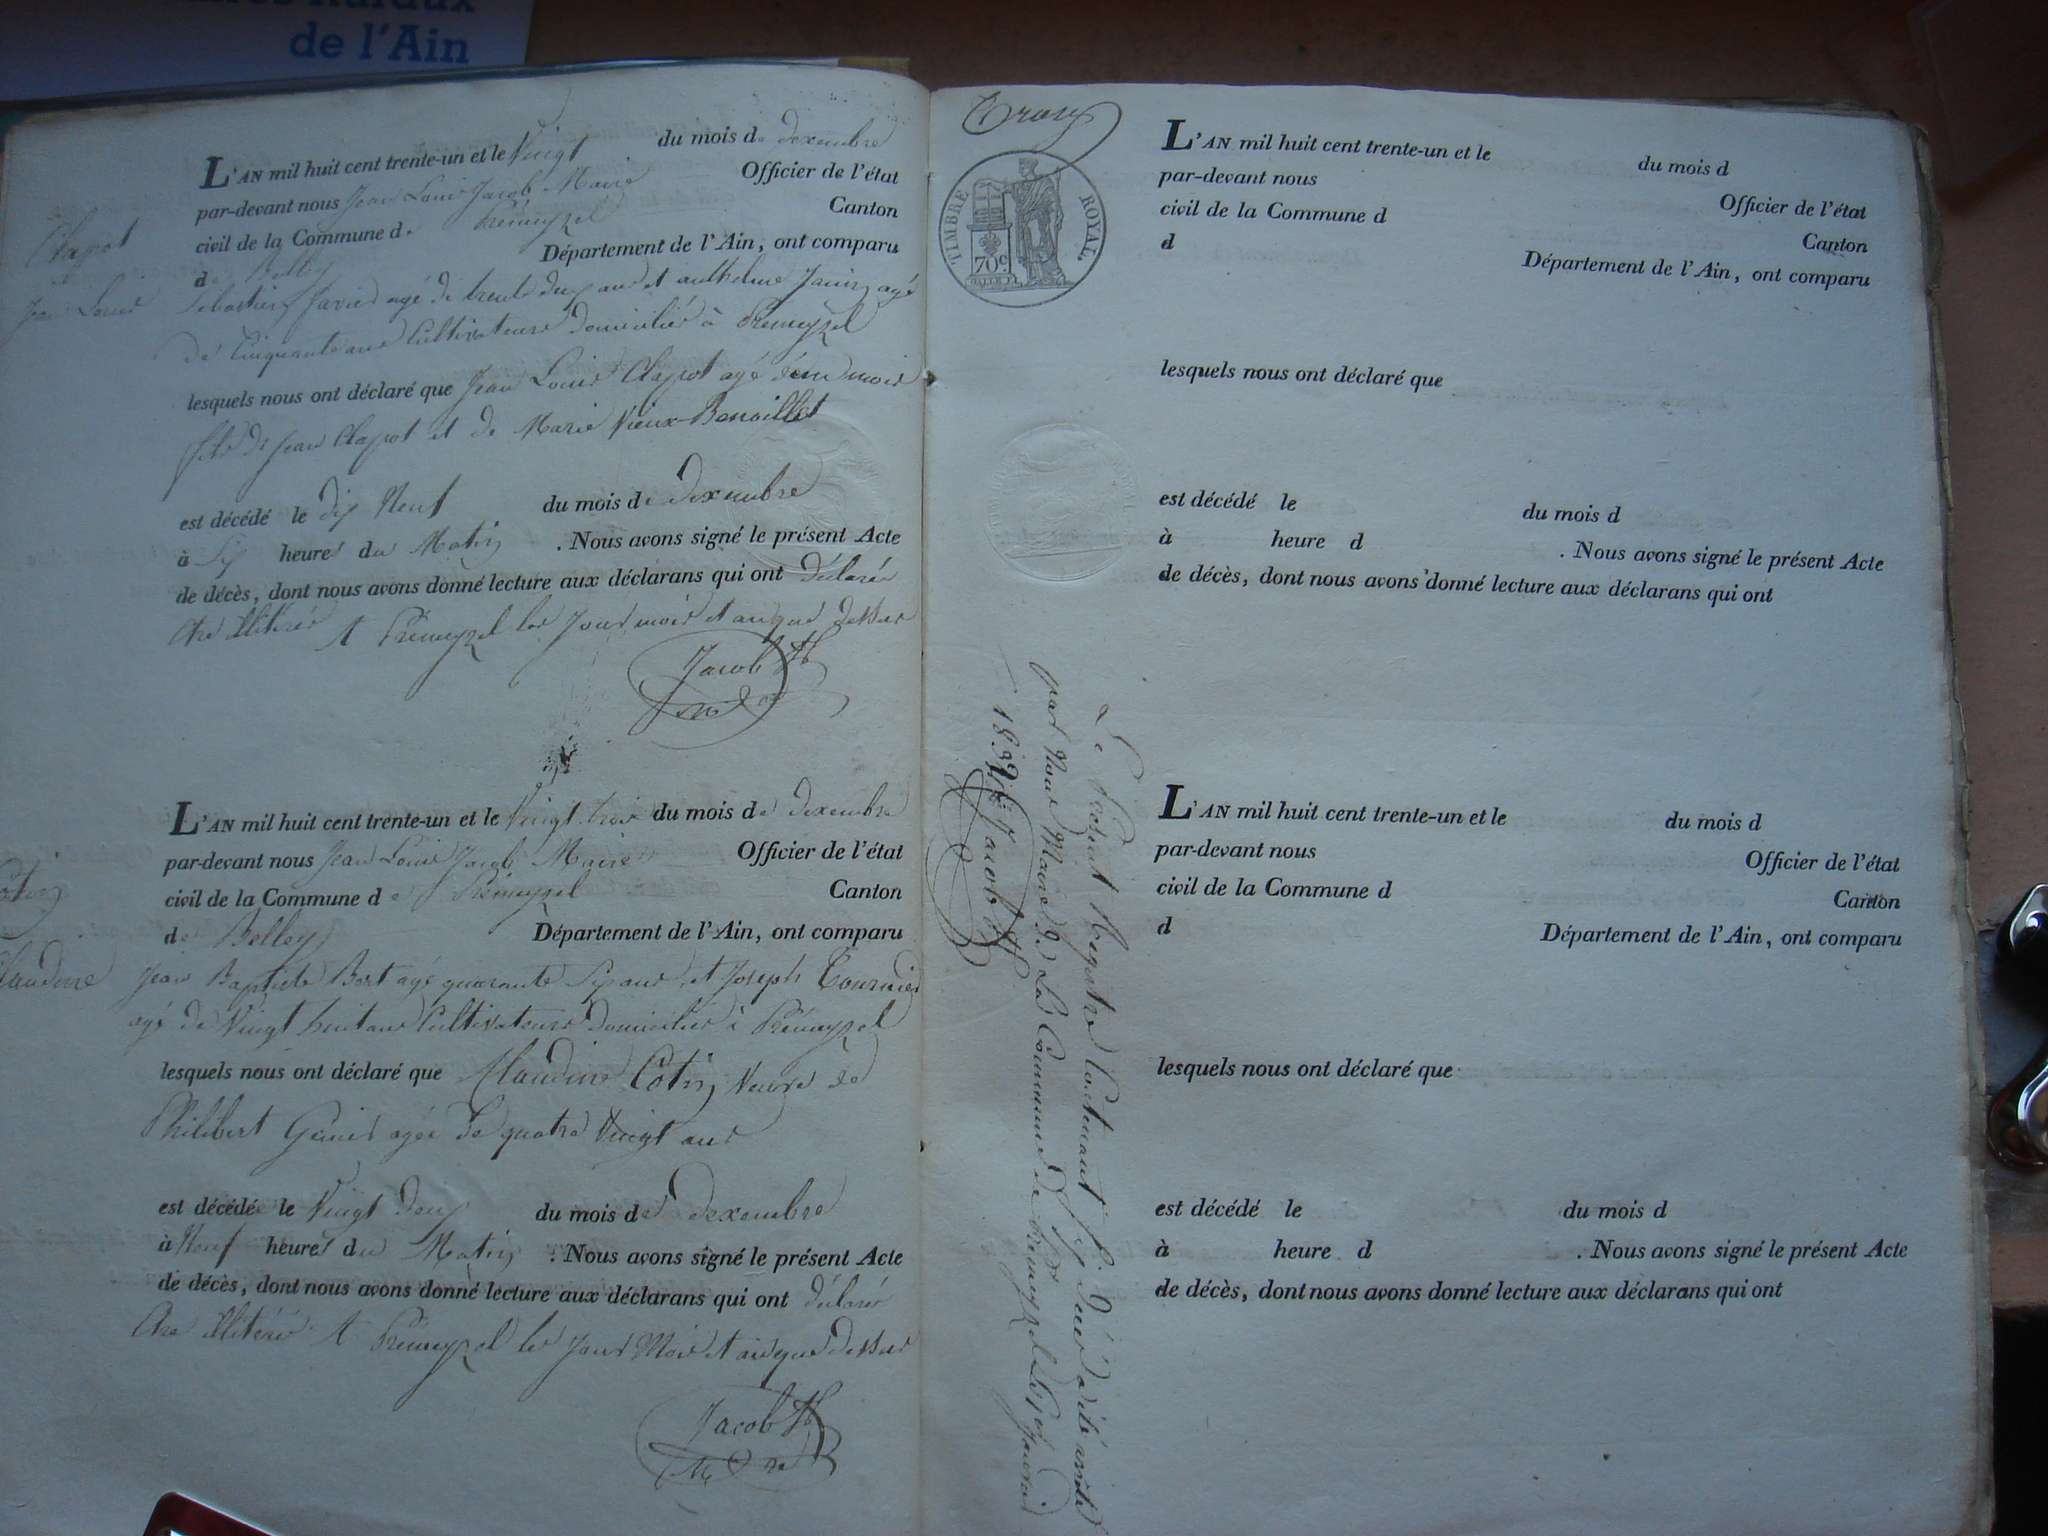 de l'Ain
Clapot
Jean Louis
L'AN mil huit cent trente-un et le Vingt du mois de dexembre
par-devant nous Jean Louis Jacob Maire Officier de l'état
civil de la Commune de Prémeyzel Canton
de Belley Département de l'Ain, ont comparu
Sebastien agé de trente deux ans et anthelme Janin agé
de Cinquante ans Cultivateurs Domiciliés à Prémeyzel
lesquels nous ont déclaré que Jean Louis Clapot agé d'un mois
fils de Jean Clapot et de Marie Vieux-Benoillet
est décédé le dix Neuf du mois de dexembre
à Six heures du Matin . Nous avons signé le présent Acte
de décès, dont nous avons donné lecture aux déclarans qui ont déclarés
être illitérés A Prémeyzel les Jour mois et an que dessus
Jacob
Cotin
Claudine
L'AN mil huit cent trente-un et le Vingt trois du mois de dexembre
par-devant nous Jean Louis Jacob Maire Officier de l'état
civil de la Commune de Prémeyzel Canton
de Belley Département de l'Ain, ont comparu
Jean Baptiste Bert agé quarante Six ans et Joseph Tournier
agé de Vingt huit ans Cultivateurs Domiciliés à Prémeyzel
lesquels nous ont déclaré que Claudine Cotin Veuve de
Philibert agée de quatre Vingt ans
est décédée le Vingt deux du mois de dexembre
à Neuf heures du Matin . Nous avons signé le présent Acte
de décès, dont nous avons donné lecture aux déclarans qui ont déclarés
être illitérés A Prémeyzel les Jour Mois et an que dessus
Jacob
TIMBRE ROYAL
70 c
Le Présent Registre Contenant
par Nous Maire de La Commune de Prémeyzel Le
Jacob
L'AN mil huit cent trente-un et le du mois d
par-devant nous Officier de l'état
civil de la Commune d Canton
d Département de l'Ain, ont comparu
lesquels nous ont déclaré que
est décédé le du mois d
à heure d . Nous avons signé le présent Acte
de décès, dont nous avons donné lecture aux déclarans qui ont
L'AN mil huit cent trente-un et le du mois d
par-devant nous Officier de l'état
civil de la Commune d Canton
d Département de l'Ain, ont comparu
lesquels nous ont déclaré que
est décédé le du mois d
à heure d . Nous avons signé le présent Acte
de décès, dont nous avons donné lecture aux déclarans qui ont